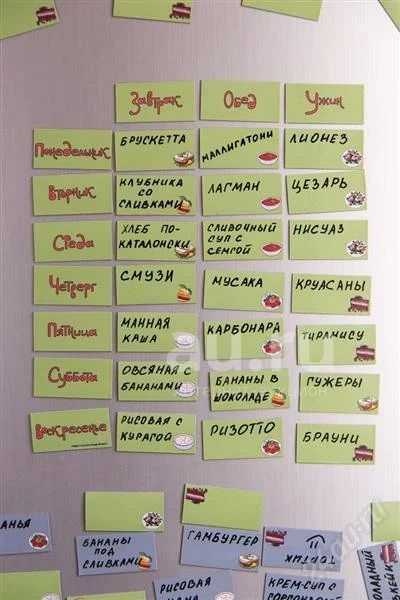 Завтрак Обед Ужин
Понедельник
БРУСКЕТТА
МАЛЛИГАТОНИ
ЛИОНЕЗ
Вторник
КЛУБНИКА
СО
СЛИВКАМИ
ЛАГМАН
ЦЕЗАРЬ
Среда
ХЛЕБ ПО-
КАТАЛОНСКИ
СЛИВОЧНЫЙ
СУП С
СЕМГОЙ
НИСУАЗ
Четверг
СМУЗИ
МУСАКА
КРУАСАНЫ
Пятница
МАННАЯ
КАША
КАРБОНАРА
ТИРАМИСУ
Суббота
ОВСЯНАЯ С
БАНАНАМИ
БАНАНЫ В
ШОКОЛАДЕ
ГУЖЕРЫ
Воскресенье
РИСОВАЯ С
КУРАГОЙ
РИЗОТТО
БРАУНИ
au.ru
АНЬЯ
БАНАНЫ
ПОД
СЛИВКАМИ
ГАМБУРГЕР
ТОРТИК
РИСОВАЯ
КРЕМ-СУП С